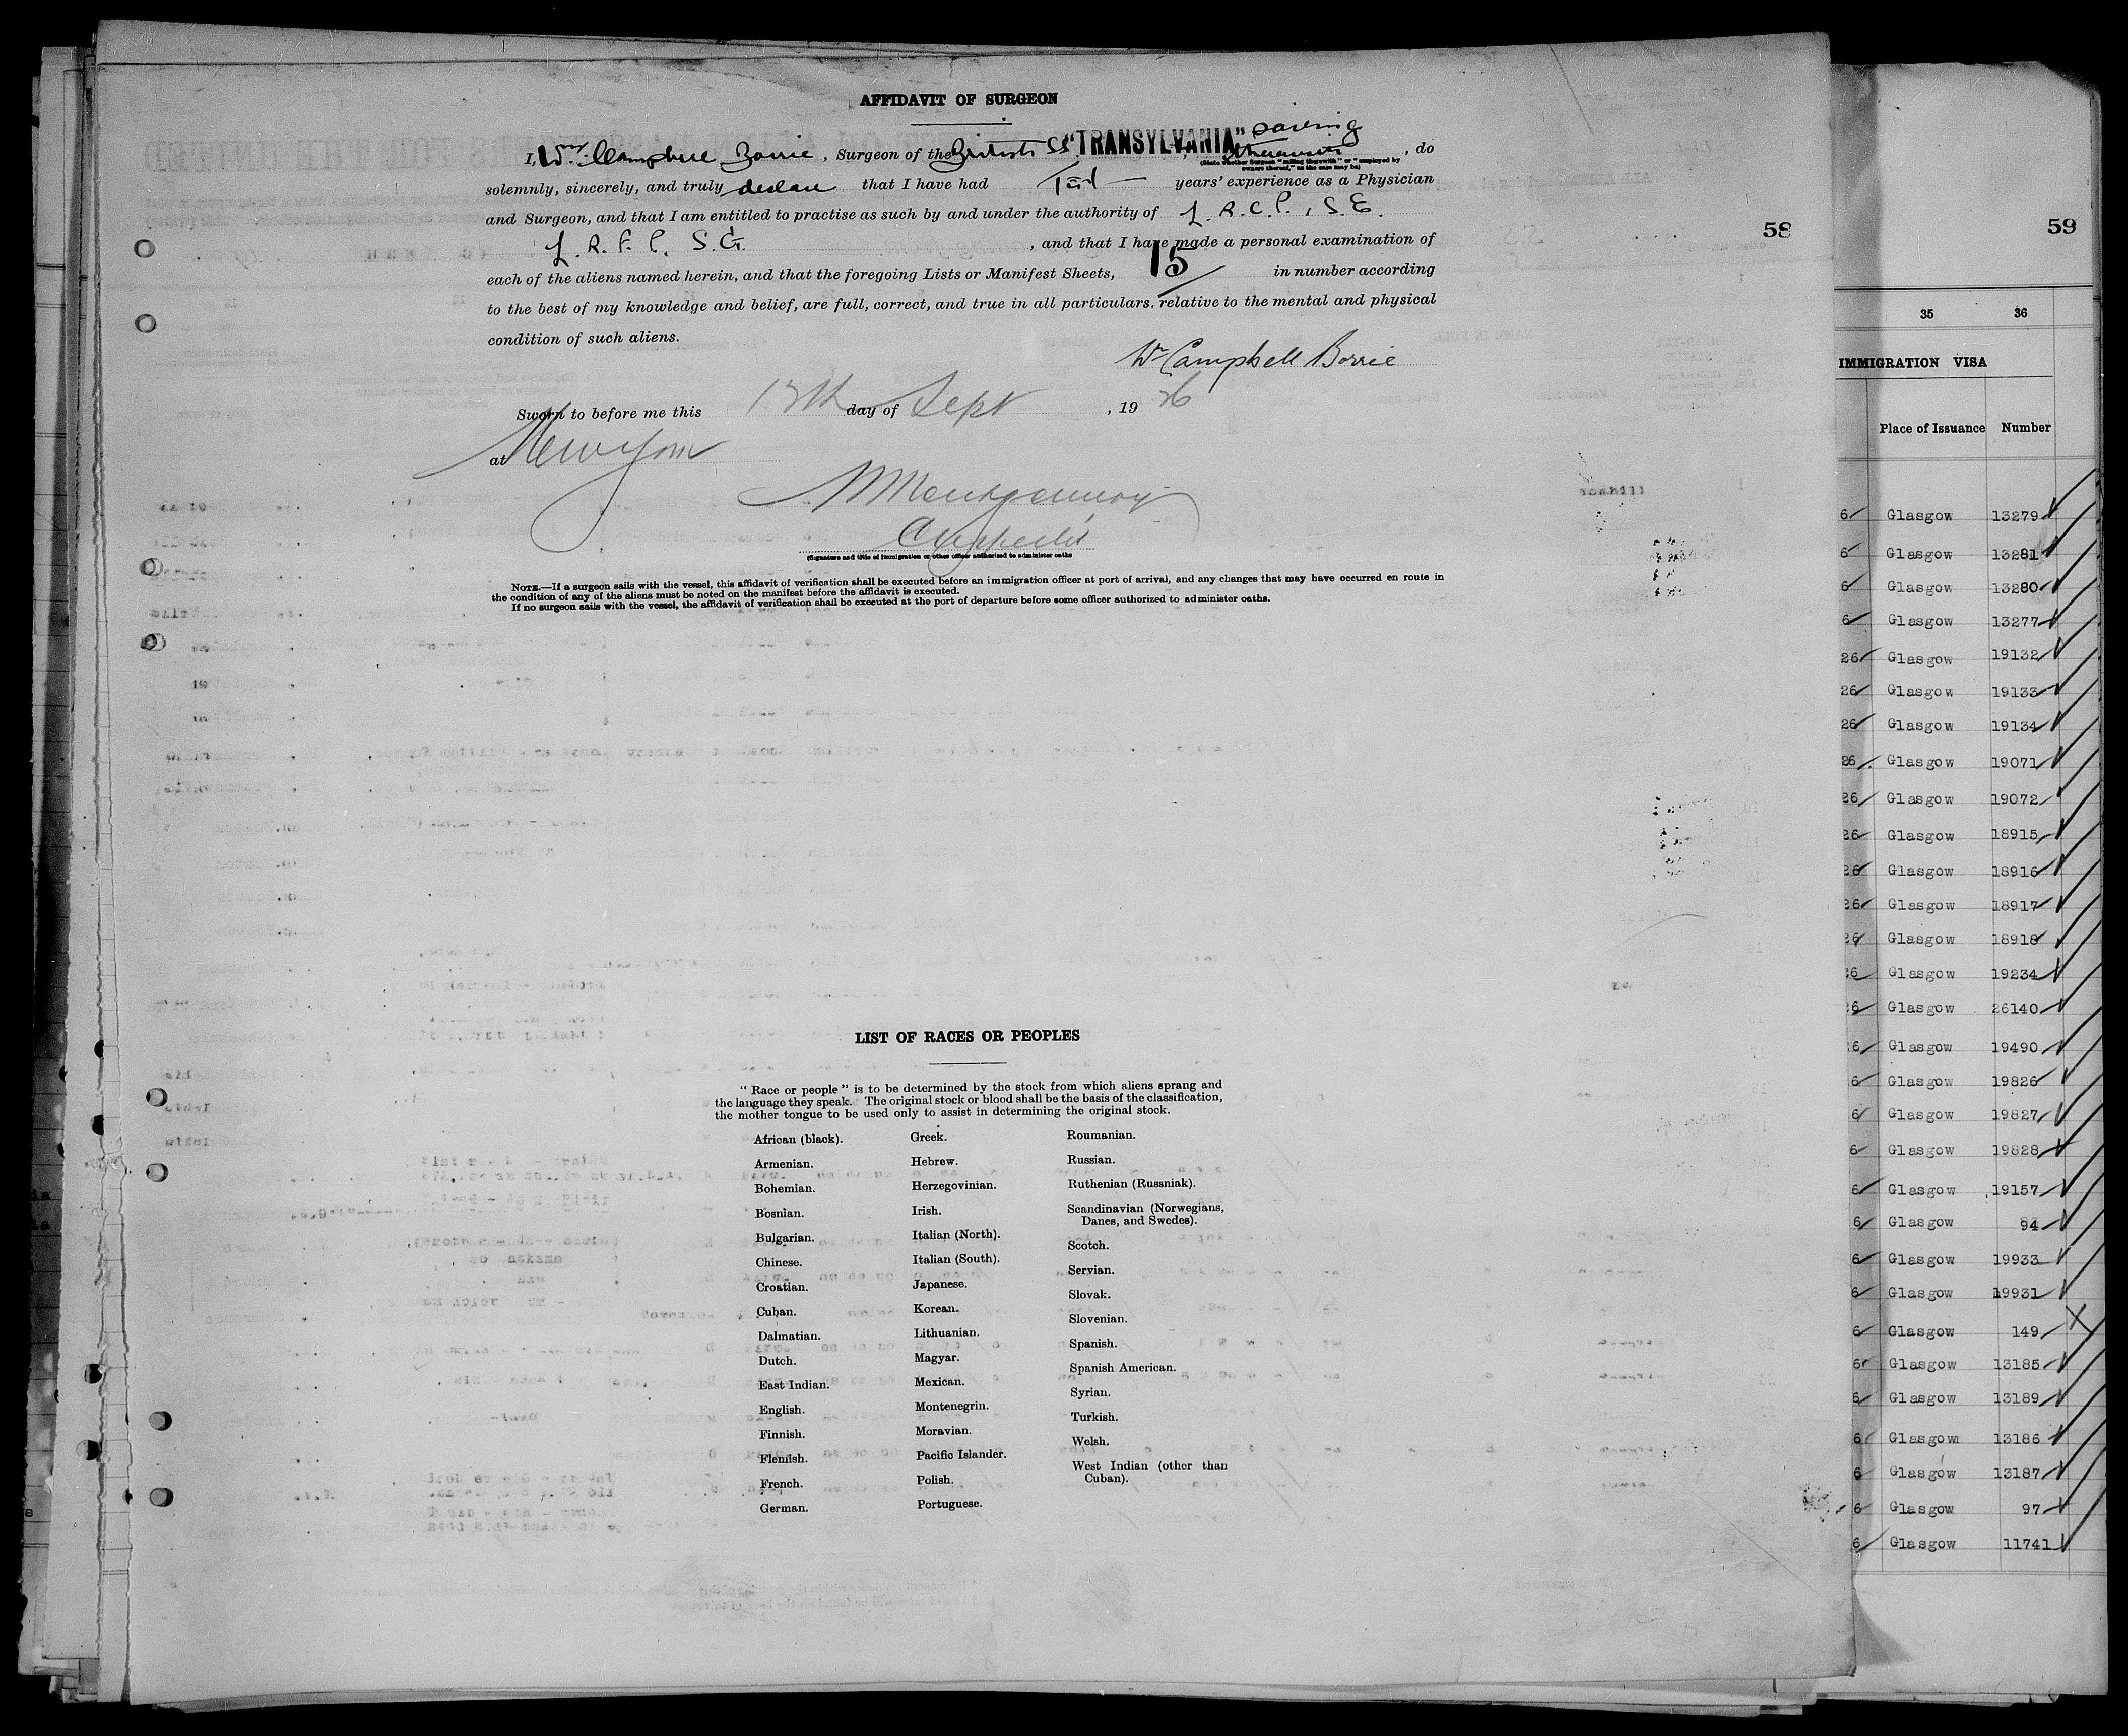 AFFIDAVIT OF SURGEON
I, Wm. Campbell Borrie, Surgeon of the British SS "TRANSYLVANIA" sailing therewith, do
(State whether Surgeon "sailing therewith" or "employed by
owners thereof," as the case may be)
solemnly, sincerely, and truly declare that I have had years' experience as a Physician
and Surgeon, and that I am entitled to practise as such by and under the authority of L.R.C.P., S.E.
L.R.F.P. S.G. , and that I have made a personal examination of
each of the aliens named herein, and that the foregoing Lists or Manifest Sheets, 15 in number according
to the best of my knowledge and belief, are full, correct, and true in all particulars, relative to the mental and physical
condition of such aliens.
Wm Campbell Borrie
Sworn to before me this day of Sept , 19 26
at New York
Montgomery
(Signature and title of immigration or other officer authorized to administer oaths
NOTE.—If a surgeon sails with the vessel, this affidavit of verification shall be executed before an immigration officer at port of arrival, and any changes that may have occurred en route in
the condition of any of the aliens must be noted on the manifest before the affidavit is executed.
If no surgeon sails with the vessel, the affidavit of verification shall be executed at the port of departure before some officer authorized to administer oaths.
58
LIST OF RACES OR PEOPLES
"Race or people" is to be determined by the stock from which aliens sprang and
the language they speak. The original stock or blood shall be the basis of the classification,
the mother tongue to be used only to assist in determining the original stock.
African (black).
Armenian.
Bohemian.
Bosnian.
Bulgarian.
Chinese.
Croatian.
Cuban.
Dalmatian.
Dutch.
East Indian.
English.
Finnish.
Flemish.
French.
German.
Greek.
Hebrew.
Herzegovinian.
Irish.
Italian (North).
Italian (South).
Japanese.
Korean.
Lithuanian.
Magyar.
Mexican.
Montenegrin.
Moravian.
Pacific Islander.
Polish.
Portuguese.
Roumanian.
Russian.
Ruthenian (Russniak).
Scandinavian (Norwegians,
Danes, and Swedes).
Scotch.
Servian.
Slovak.
Slovenian.
Spanish.
Spanish American.
Syrian.
Turkish.
Welsh.
West Indian (other than
Cuban).
59
35 36
IMMIGRATION VISA
Place of Issuance Number
6 Glasgow 13279
6 Glasgow 13281
6 Glasgow 13280
6 Glasgow 13277
26 Glasgow 19132
26 Glasgow 19133
26 Glasgow 19134
26 Glasgow 19071
26 Glasgow 19072
26 Glasgow 18915
26 Glasgow 18916
26 Glasgow 18917
26 Glasgow 18918
26 Glasgow 19234
26 Glasgow 26140
6 Glasgow 19490
6 Glasgow 19826
6 Glasgow 19827
6 Glasgow 19828
6 Glasgow 19157
6 Glasgow 94
6 Glasgow 19933
6 Glasgow 19931
6 Glasgow 149
6 Glasgow 13185
6 Glasgow 13189
6 Glasgow 13186
6 Glasgow 13187
6 Glasgow 97
6 Glasgow 11741